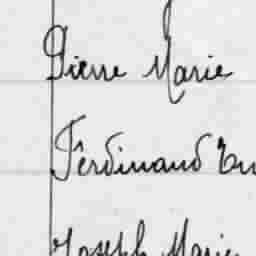 Pierre Marie
Ferdinand
Joseph Marie